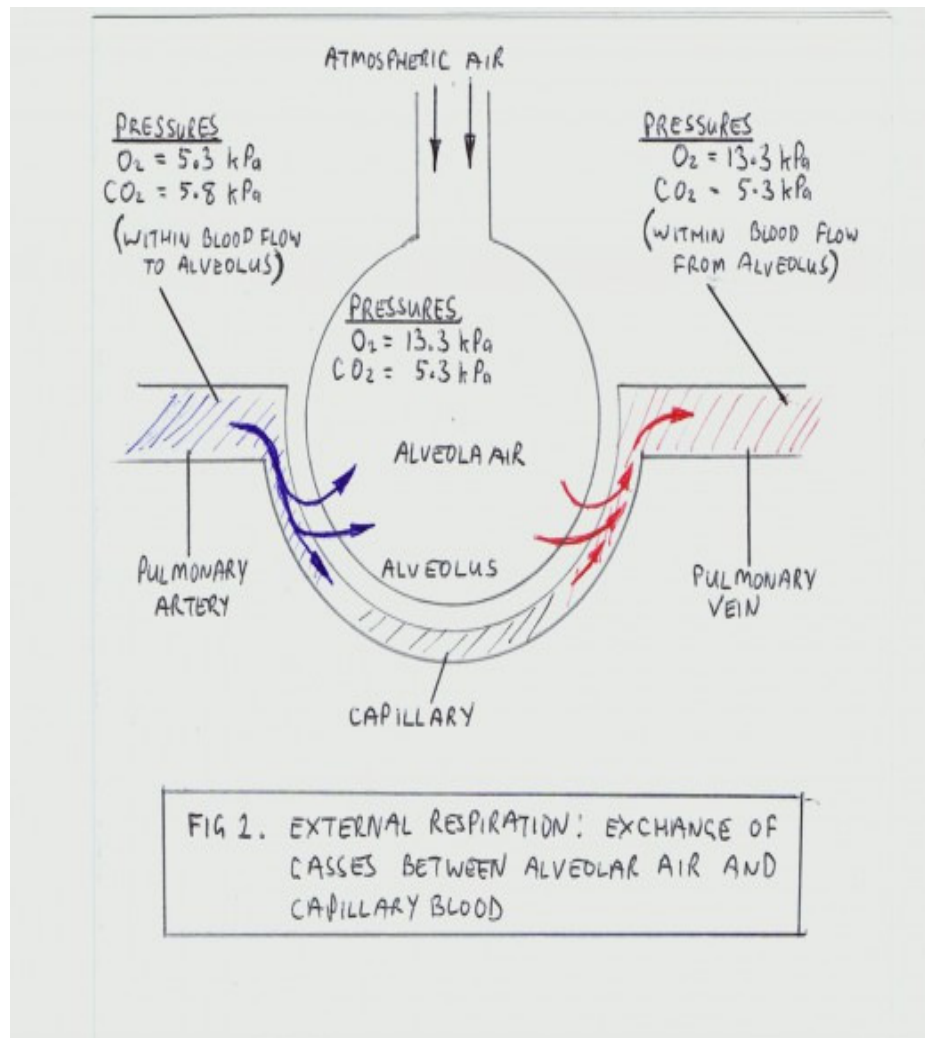 ATMOSPHERIC AIR
PRESSURES
O₂ = 5.3 kPa
CO₂ = 5.8 kPa
(WITHIN BLOOD FLOW
TO ALVEOLUS)
PRESSURES
O₂ = 13.3 kPa
CO₂ - 5.3 kPa
(WITHIN BLOOD FLOW
FROM ALVEOLUS)
PRESSURES
O₂ = 13.3 kPa
CO₂ = 5.3 kPa
ALVEOLA AIR
ALVEOLUS
PULMONARY
ARTERY
PULMONARY
VEIN
CAPILLARY
FIG 2. EXTERNAL RESPIRATION: EXCHANGE OF
GASSES BETWEEN ALVEOLAR AIR AND
CAPILLARY BLOOD